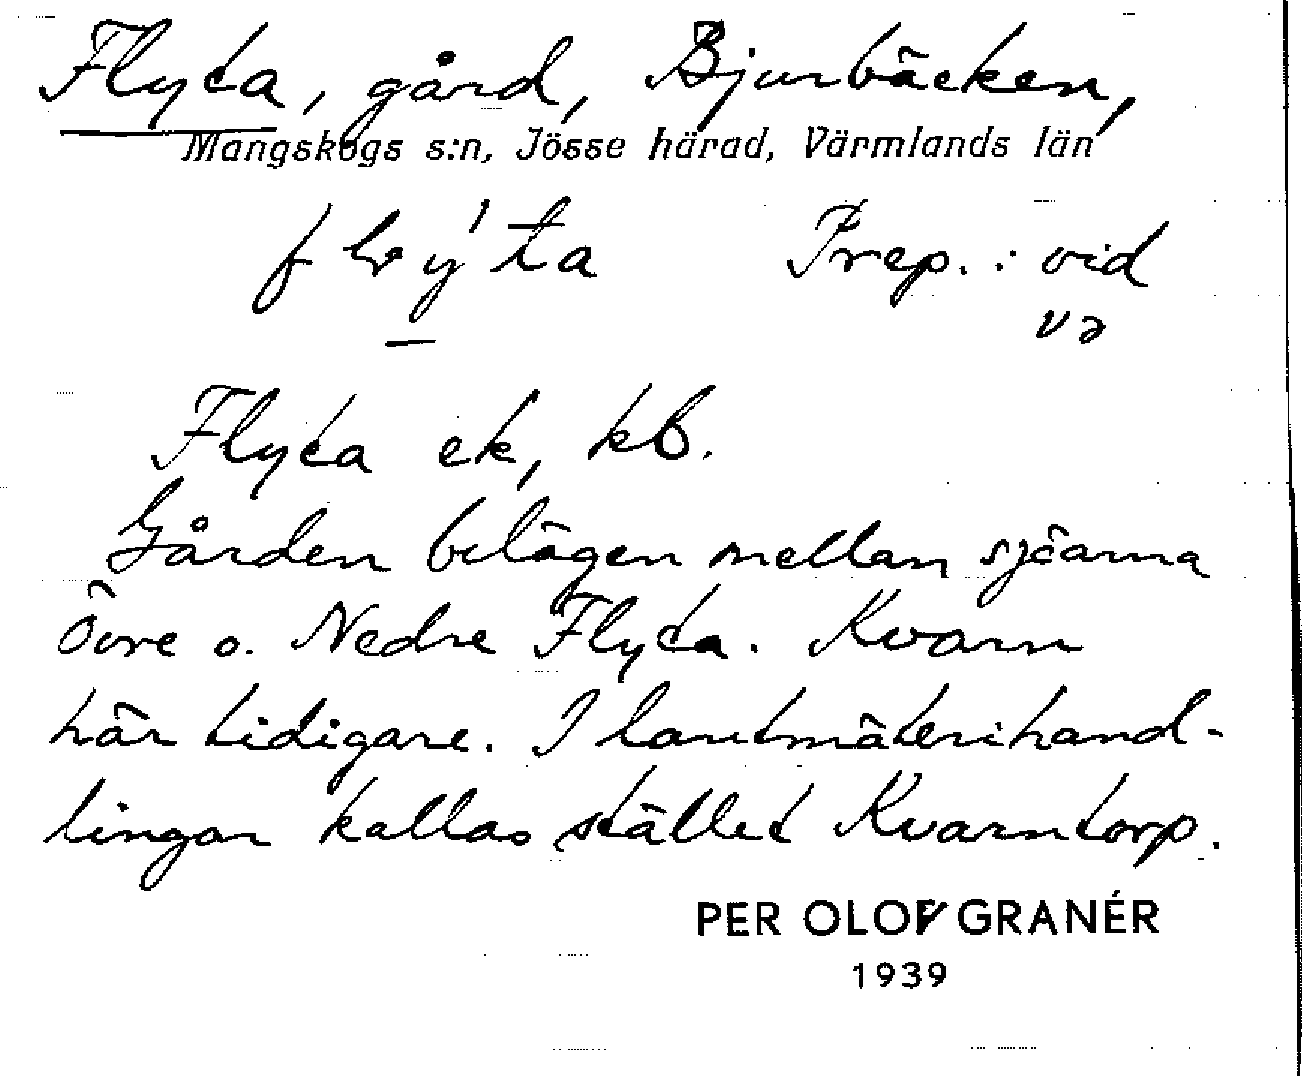 Flyta, gård, Bjurbäcken,
Mangskogs s:n, Jösse härad, Värmlands län
Prep.: vid
və
Flyta ek, kb.
Gården belägen mellan sjöarna
Övre o. Nedre Flyta. Kvarn
här tidigare. I lantmäterihand-
lingar kallas stället Kvarntorp.
PER OLOF GRANÉR
1939